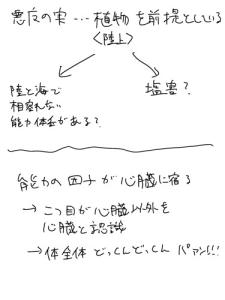 悪魔の実 … 植物を前提としている
<陸上>
陸と海で
相容れない
能力体系がある?
塩害?
能力の因子が心臓に宿る
→ 二つ目が心臓以外を
心臓と認識
→ 体全体 どっくんどっくん パァン!!!